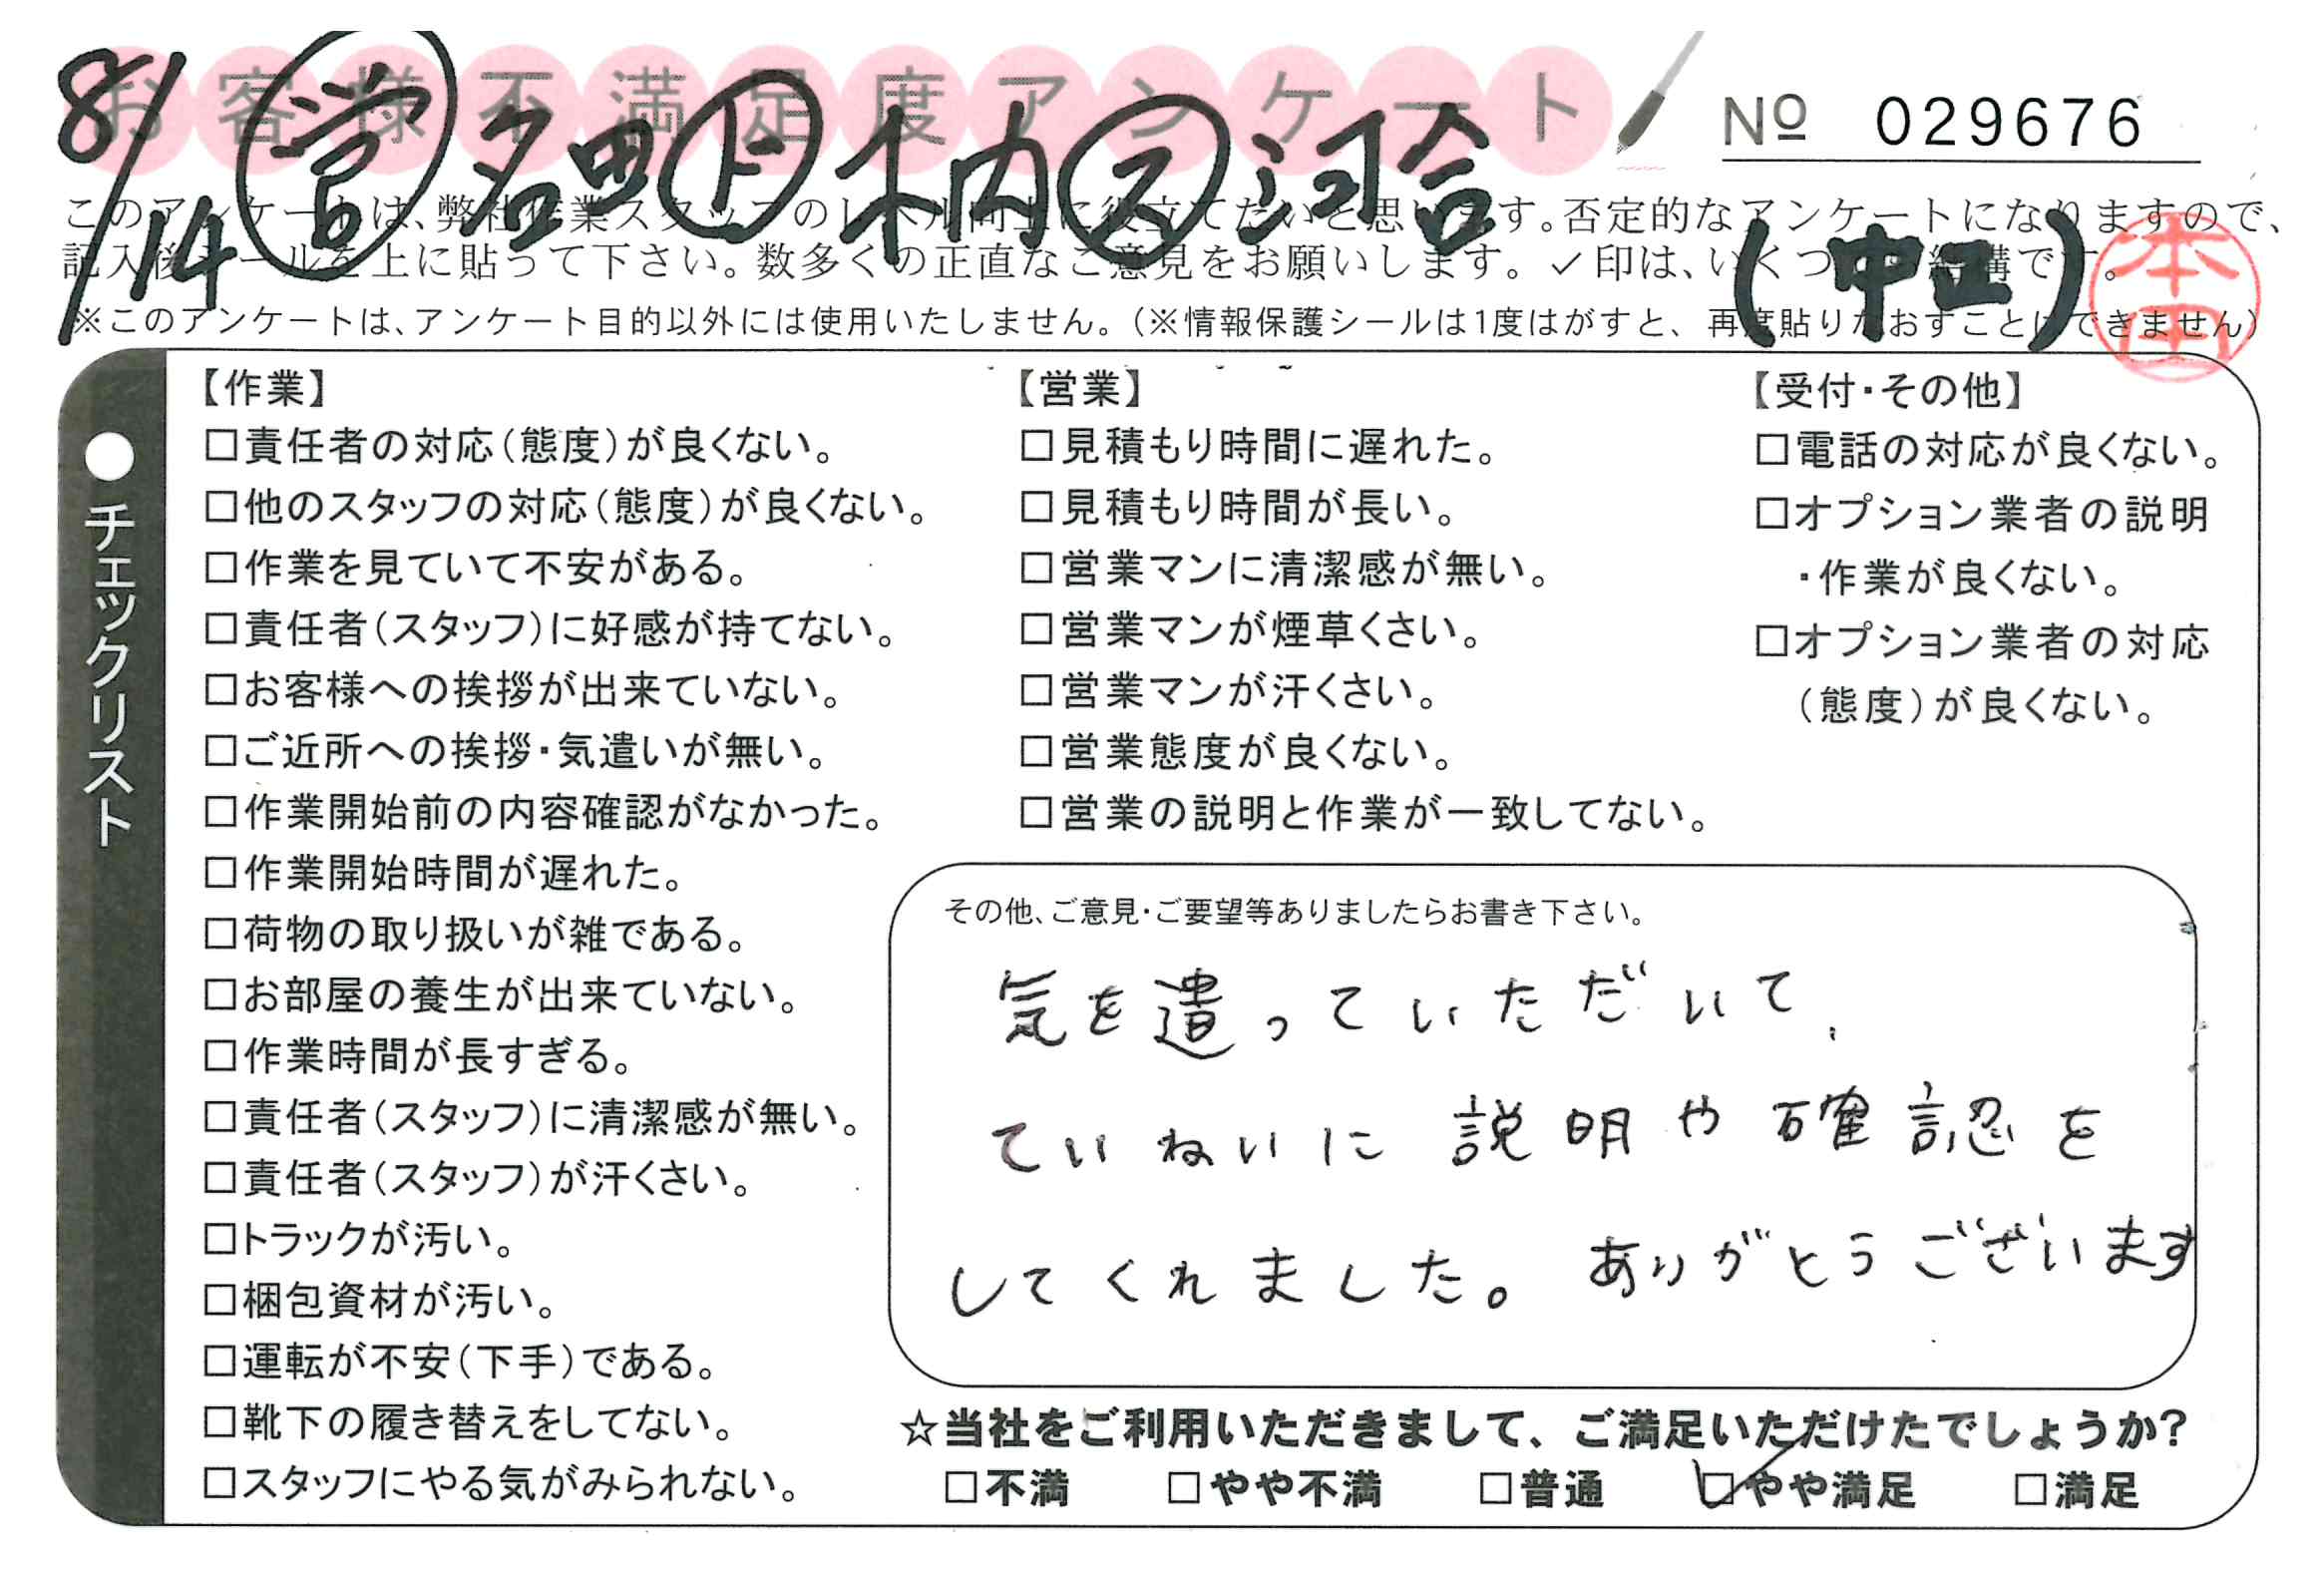 お客様不満足度アンケート
№ 029676
8/14 営 名田 ト 木内 ス 河合
(中江)
本田
このアンケートは、弊社作業スタッフのレベル向上に役立てたいと思います。否定的なアンケートになりますので、
記入後シールを上に貼って下さい。数多くの正直なご意見をお願いします。✓印は、いくつでも結構です。
※このアンケートは、アンケート目的以外には使用いたしません。(※情報保護シールは1度はがすと、再度貼りなおすことはできません)
●チェックリスト
【作業】
□責任者の対応(態度)が良くない。
□他のスタッフの対応(態度)が良くない。
□作業を見ていて不安がある。
□責任者(スタッフ)に好感が持てない。
□お客様への挨拶が出来ていない。
□ご近所への挨拶・気遣いが無い。
□作業開始前の内容確認がなかった。
□作業開始時間が遅れた。
□荷物の取り扱いが雑である。
□お部屋の養生が出来ていない。
□作業時間が長すぎる。
□責任者(スタッフ)に清潔感が無い。
□責任者(スタッフ)が汗くさい。
□トラックが汚い。
□梱包資材が汚い。
□運転が不安(下手)である。
□靴下の履き替えをしてない。
□スタッフにやる気がみられない。
【営業】
□見積もり時間に遅れた。
□見積もり時間が長い。
□営業マンに清潔感が無い。
□営業マンが煙草くさい。
□営業マンが汗くさい。
□営業態度が良くない。
□営業の説明と作業が一致してない。
【受付・その他】
□電話の対応が良くない。
□オプション業者の説明
・作業が良くない。
□オプション業者の対応
(態度)が良くない。
その他、ご意見・ご要望等ありましたらお書き下さい。
気を遣っていただいて、
ていねいに説明や確認を
してくれました。ありがとうございます
☆当社をご利用いただきまして、ご満足いただけたでしょうか?
□不満 □やや不満 □普通 ☑やや満足 □満足